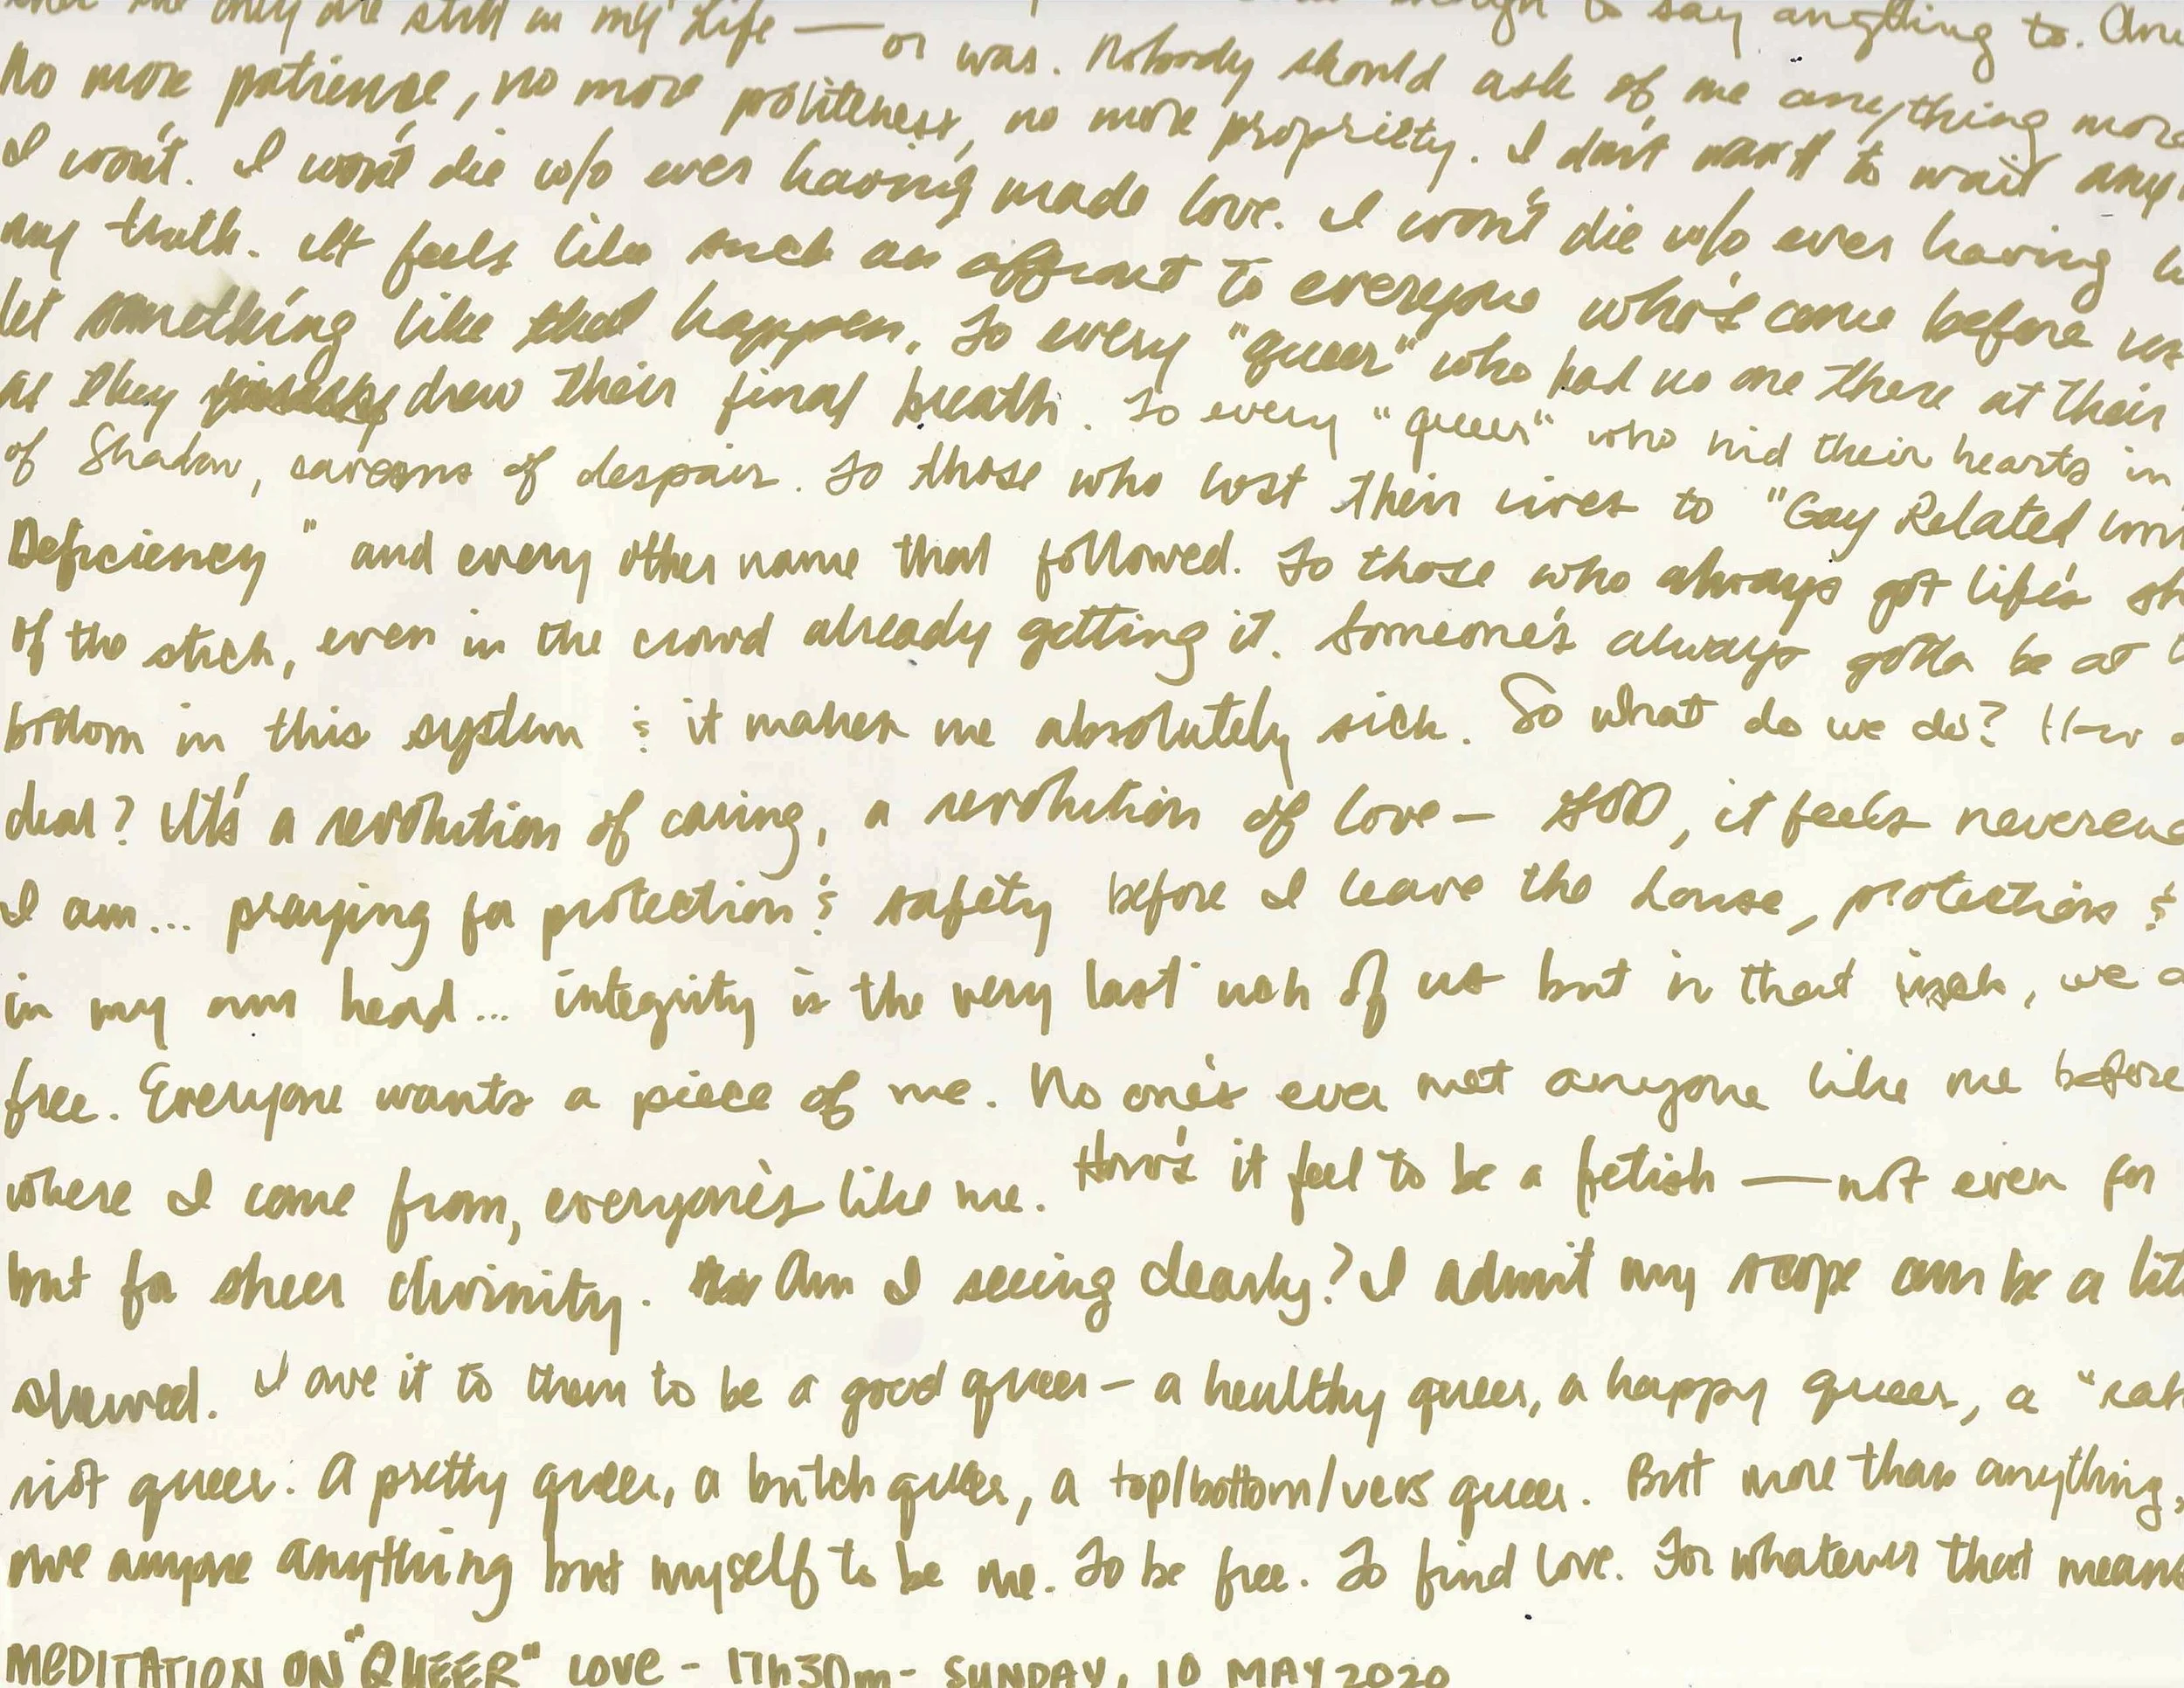 the only one still in my life — or was. Nobody should ask of me anything more
No more patience, no more politeness, no more propriety. I don't want to wait any
I won't. I won't die w/o ever having made love. I won't die w/o ever having
my truth. It feels like such an affront to everyone who's come before us
let something like that happen. To every "queer" who had no one there at their
as they drew their final breath. To every "queer" who hid their hearts in
of Shadow, caverns of despair. To those who lost their lives to "Gay Related
Deficiency" and every other name that followed. To those who always got life's
of the stick, even in the crowd already getting it. Someone's always gotta be at
bottom in this system & it makes me absolutely sick. So what do we do? How
dear? It's a revolution of caring, a revolution of love — GOD, it feels
I am... praying for protection & safety before I leave the house, protection &
in my own head... integrity is the very last inch of us but in that inch, we
free. Everyone wants a piece of me. No one's ever met anyone like me before
where I come from, everyone's like me. How's it feel to be a fetish — not even for
but for sheer divinity. Am I seeing clearly? I admit my scope can be a
skewed. I owe it to them to be a good queer — a healthy queer, a happy queer, a
not queer. A pretty queer, a butch queer, a top/bottom/vers queer. But more than anything,
owe anyone anything but myself to be me. To be free. To find love. For whatever that means
MEDITATION ON "QUEER" LOVE - 17h30m - SUNDAY, 10 MAY 2020